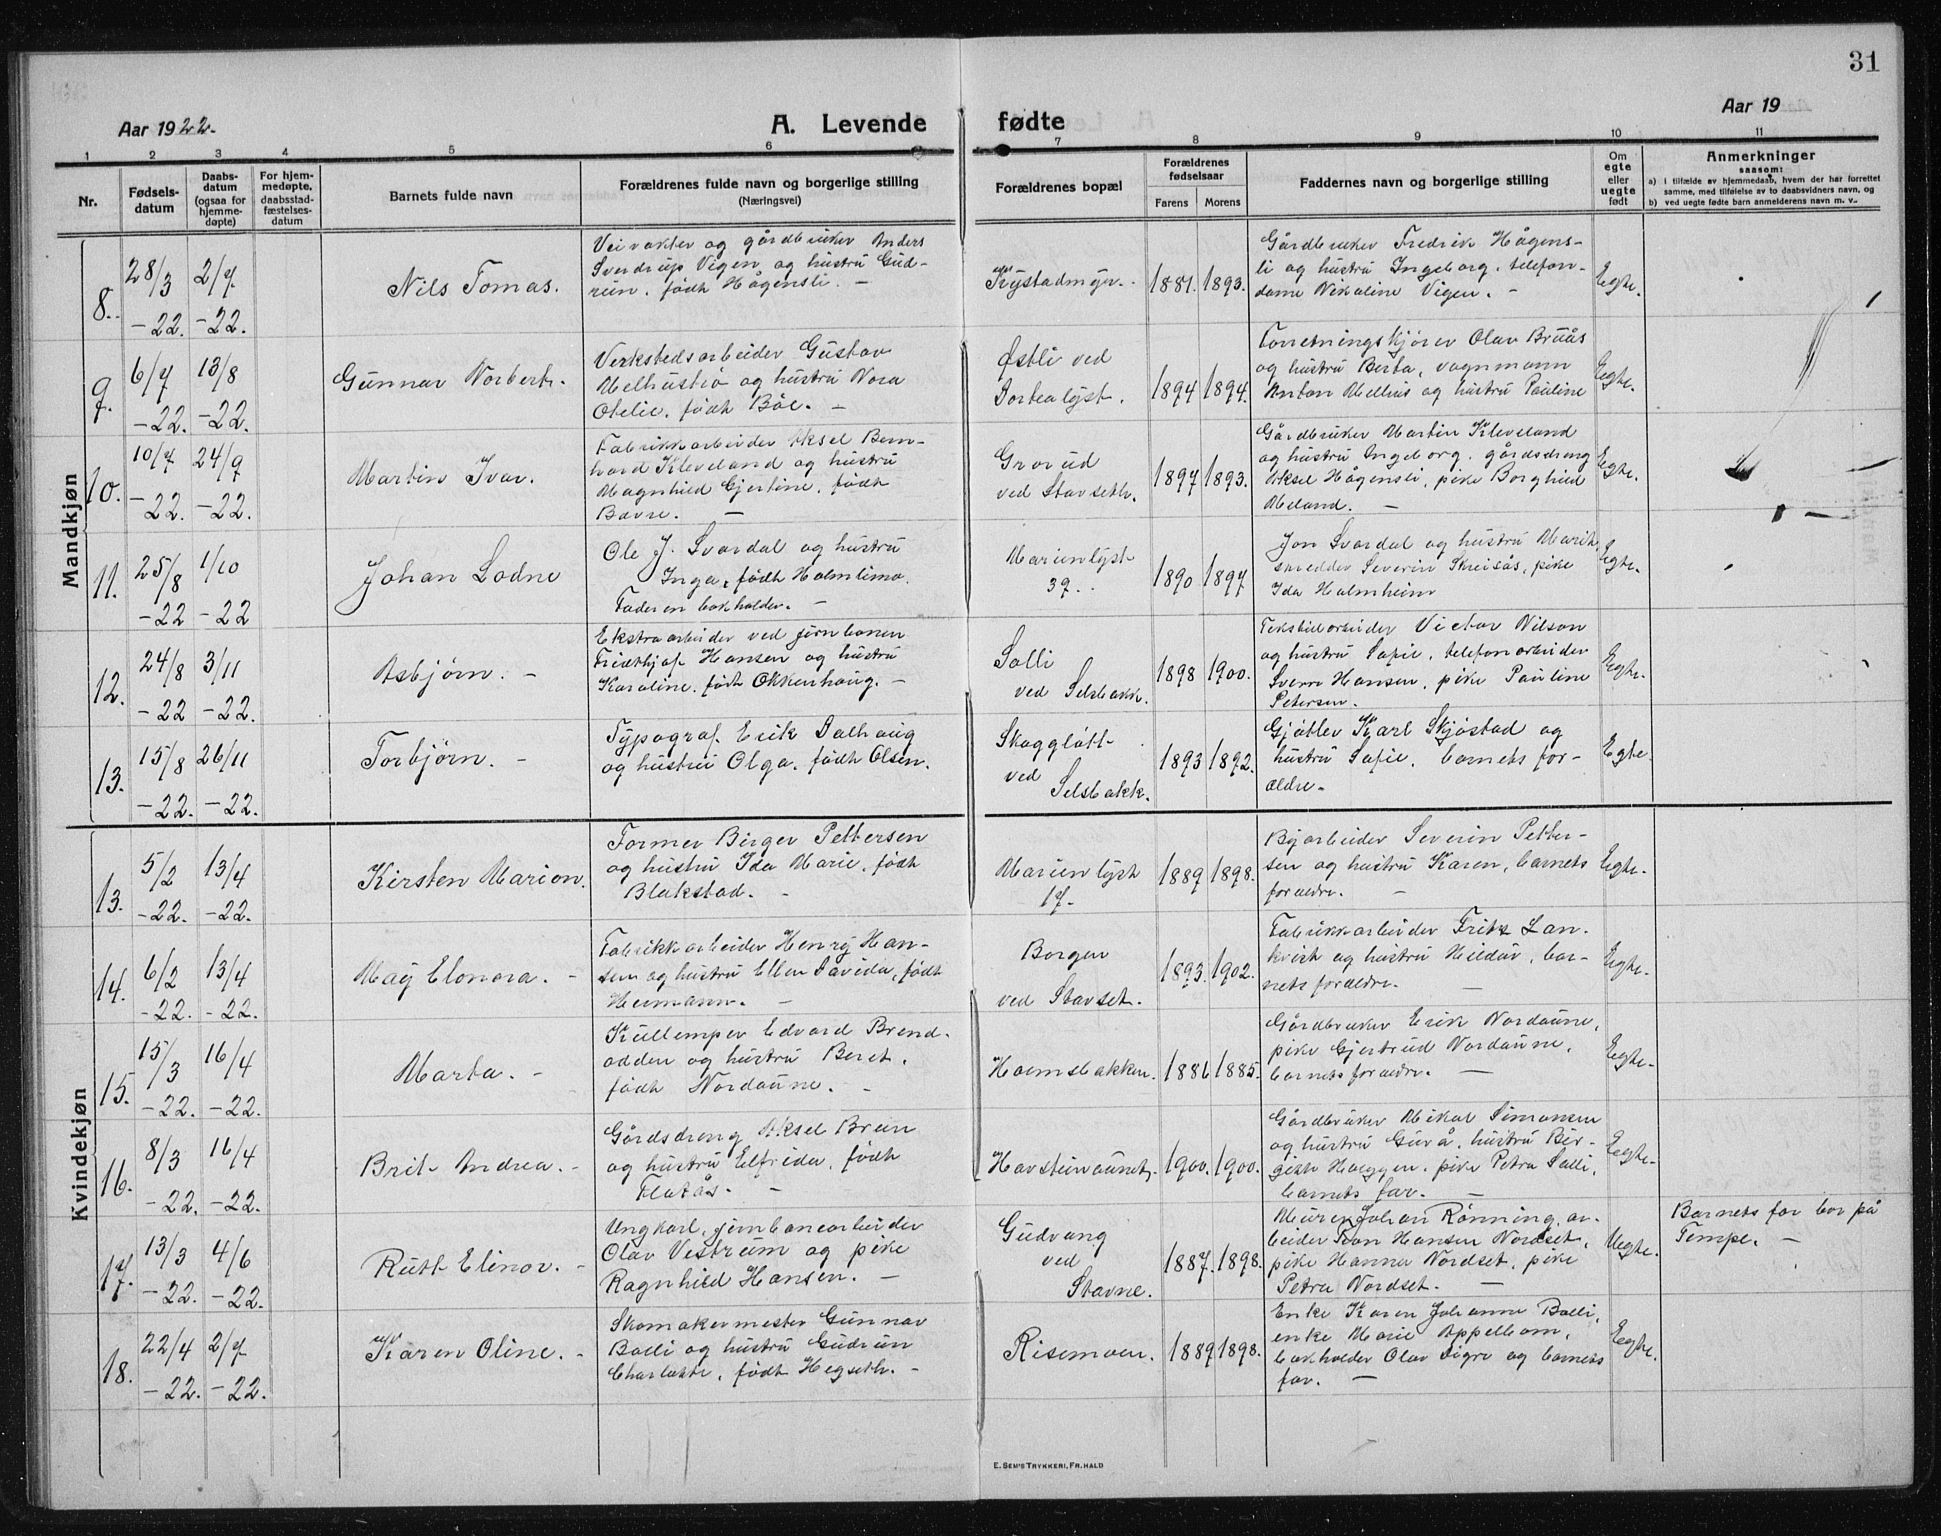 31
Aar 1922.
A. Levende fødte
Aar 19
1 2 3 4 5 6 7 8 9 10 11
Nr.
Fødsels-
datum
Daabs-
datum
(ogsaa for
hjemme-
døpte)
For hjem-
medøpte,
daabsstad-
fæstelses-
datum
Barnets fulde navn
Forældrenes fulde navn og borgerlige stilling
(Næringsvei)
Forældrenes bopæl
Forældrenes
fødselsaar
Farens Morens
Faddernes navn og borgerlige stilling
Om
egte
eller
uegte
født
Anmerkninger
saasom:
a) i tilfælde av hjemmedaab, hvem der har forrettet
samme, med tilføielse av to daabsvidners navn, og
b) ved uegte fødte barn anmelderens navn m. v..
Mandkjøn
8.
28/3
-22.
2/7
-22.
Nils Tomas.
Veivokter og gårdbruker Anders
Sverdrup Vigen og hustru Gud-
run, født Hågensli. -
Kystadmyr.
1881. 1893.
Gårdbruker Fredrik Hågens-
li og hustru Ingeborg, telefon-
dame Nikoline Vigen. -
Egte.
9.
6/7
-22.
13/8
-22.
Gunnar Norbert.
Verkstedsarbeider Gustav
Melhustrø og hustru Nora
Otelie, født Böe. -
Østli ved
Dortealyst.
1894 1894.
Forretningskjører Olav Bruås
og hustru Berta, vognmann
Anton Melhus og hustru Pauline
Egte.
10.
10/7
-22.
24/9
-22.
Martin Ivar.
Fabrikkarbeider Aksel Bern-
hard Kleveland og hustru
Magnhild Gjertine, født
Bavre. -
Grorud
ved Stavseth.
1897 1893.
Gårdbruker Martin Kleveland
og hustru Ingeborg, gårdsdreng
Aksel Hågensli, pike Borghild
Meland. -
Egte.
11.
25/8
-22
1/10
-22
Johan Lodne
Ole J. Svardal og hustru
Inga, født Holmlimo.
Faderen bokholder. -
Marienlyst
39.
1890 1897
Jon Svardal og hustru Marit,
skredder Severin Skreisås, pike
Ida Holmheim
Egte.
12.
24/8
-22
3/11
-22.
Asbjørn. -
Ekstraarbeider ved jernbanen
Fridthjof Hansen og hustru
Karoline, født Okkenhaug. -
Solli
ved Selsbakk.
1898 1900.
Tekstilarbeider Victor Nilson
og hustru Sofie, telefonarbeider
Sverre Hansen, pike Pauline
Petersen.
Egte.
13.
15/8
-22.
26/11
-22.
Torbjörn. -
Typograf Erik Dalhaug
og hustru Olga, født Olsen.
Skogglött
ved
Selsbakk.
1893 1892.
Gjötler Karl Skjöstad og
hustru Sofie, barnets for-
ældre.
Egte
Kvindekjøn
13.
5/2
-22.
13/4
-22.
Kirsten Marion.
Former Birger Pettersen
og hustru Ida Marie, født
Blakstad. -
Marienlyst
17.
1889 1898.
Byarbeider Severin Petter-
sen og hustru Karen, barnets
forældre. -
Egte.
14.
6/2
-22.
13/4
-22.
May Elonora. -
Fabrikkarbeider Henry Han-
sen og hustru Ellen Davida, født
Heimann. -
Borgen
ved Stavset.
1893. 1902.
Fabrikkarbeider Fritz Lan-
kvist og hustru Hildur, bar-
nets forældre. -
Egte.
15.
15/3
-22.
16/4
-22.
Marta. -
Kullemper Edvard Brend-
odden og hustru Beret,
født Nordaune. -
Holmsbakken.
1886 1885.
Gårdbruker Erik Nordaune,
pike Gjertrud Nordaune,
barnets forældre. -
Egte.
16.
8/3
-22.
16/4
-22.
Brit Andrea. -
Gårdsdreng Aksel Bruun
og hustru Elfrida, født
Flatås. -
Havsteinaunet,
1900. 1900.
Gårdbruker Mikal Simonsen
og hustru Guru, hustru Bir-
gitte Haggen, pike Petra Solli,
barnets far. -
Egte.
17.
13/3
-22.
4/6
-22.
Rutt Elinor. -
Ungkarl, jernbanearbeider
Olav Vestrum og pike
Ragnhild Hansen. -
Gudvang
ved
Stavne.
1887. 1898.
Murer Johan Rønning, ar-
beider Hansen Nordset,
pike Hanna Nordset, pike
Petra Nordset. -
Uegte.
Barnets far bor på
Tempe. -
18.
22/4
-22.
2/7
-22.
Karen Oline. -
Skomakermester Gunnar
Bolli og hustru Gudrun
Charlotte, født Hegseth. -
Risemoen.
1889 1898.
Enke Karen Johanne Bolli,
enke Marie Appelbom,
bokholder Olav Digre og barnets
far. -
Egte.
E. SEM'S TRYKKERI, FR.HALD